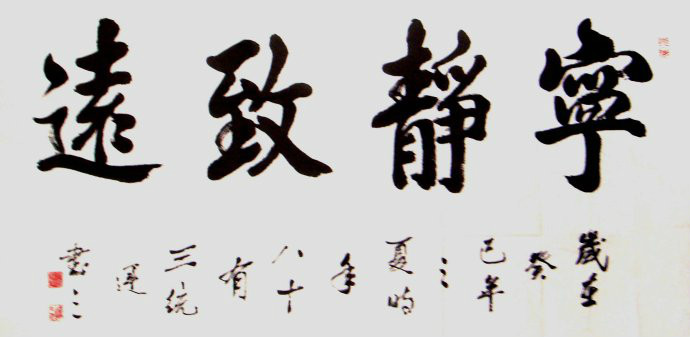 寧靜致遠
歲在癸巳年之夏時年八十有三統運書之